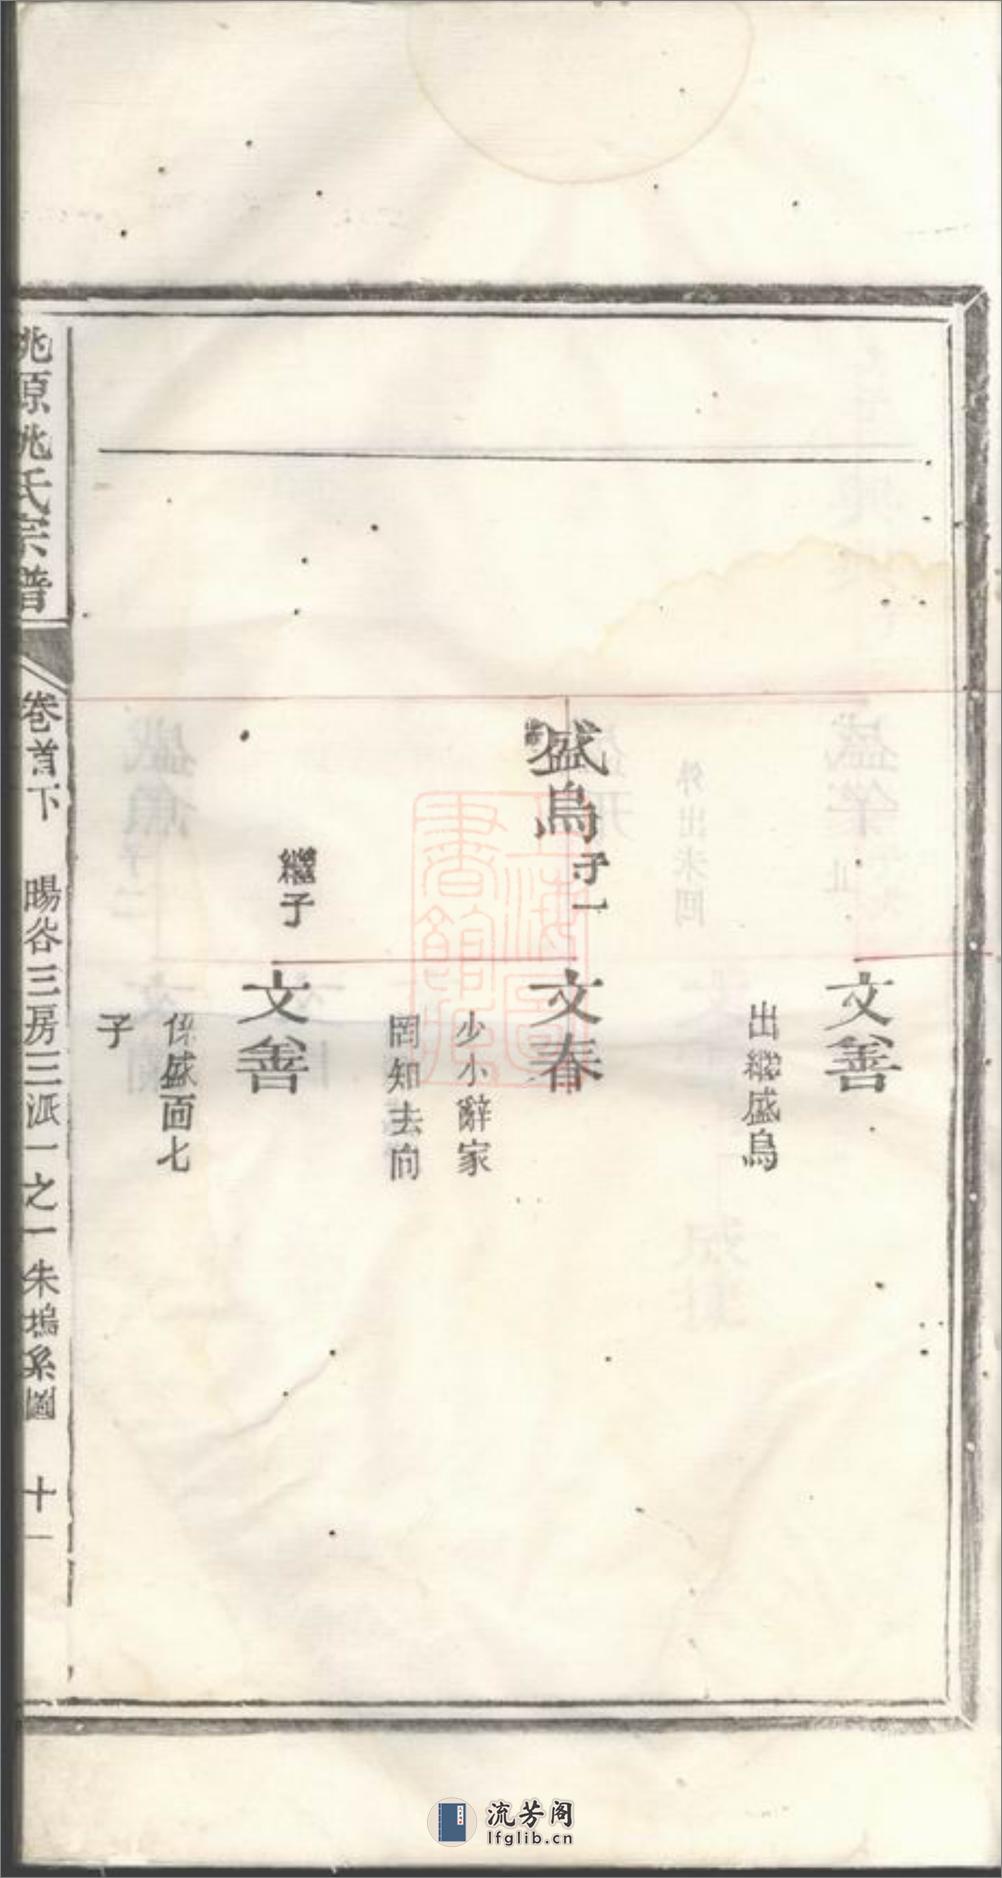 文善
出繼盛烏
盛烏 子一
文春
少小辭家
罔知去向
繼子
文善
係盛面七
子
姚原姚氏宗譜
卷首下 暘谷三房三派一之一朱塢系圖 十一
上海圖書館藏
流芳阁
lfglib.cn